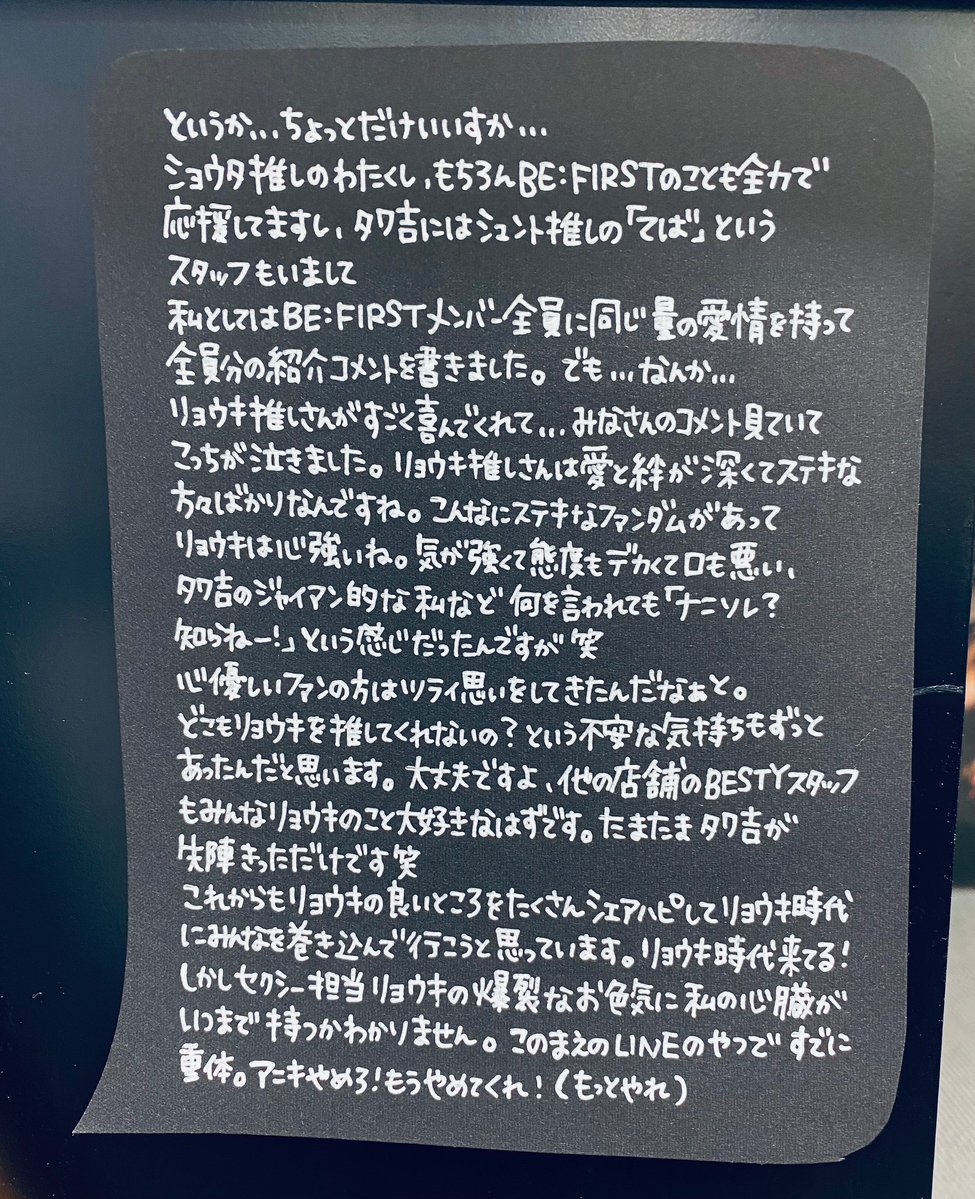 というか...ちょっとだけいいすか...
ショウタ推しのわたくし、もちろんBE:FIRSTのことも全力で
応援してますし、タワ吉にはシュント推しの「てば」という
スタッフもいまして
私としてはBE:FIRSTメンバー全員に同じ量の愛情を持って
全員分の紹介コメントを書きました。でも...なんか...
リョウキ推しさんがすごく喜んでくれて...みなさんのコメント見ていて
こっちが泣きました。リョウキ推しさんは愛と絆が深くてステキな
方々ばかりなんですね。こんなにステキなファンダムがあって
リョウキは心強いね。気が強くて態度もデカくて口も悪い、
タワ吉のジャイアン的な私など何を言われても「ナニソレ?
知らねー!」という感じだったんですが笑
心優しいファンの方はツライ思いをしてきたんだなぁと。
どこもリョウキを推してくれないの?という不安な気持ちもずっと
あったんだと思います。大丈夫ですよ、他の店舗のBESTYスタッフ
もみんなリョウキのこと大好きなはずです。たまたまタワ吉が
先陣きっただけです笑
これからもリョウキの良いところをたくさんシェアハピしてリョウキ時代
にみんなを巻き込んで行こうと思っています。リョウキ時代来てる!
しかしセクシー担当リョウキの爆裂なお色気に私の心臓が
いつまで持つかわかりません。このまえのLINEのやつですでに
重体。アニキやめろ!もうやめてくれ!(もっとやれ)